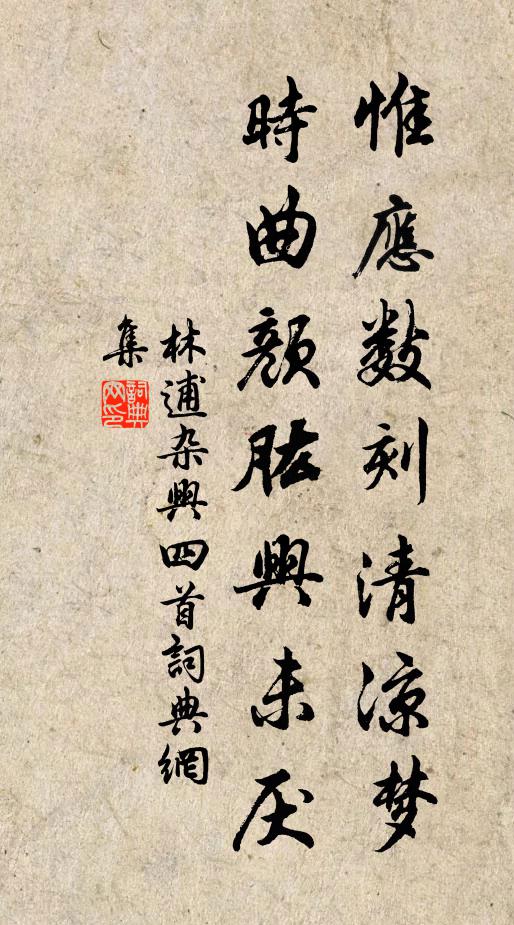 惟應數刻清凉梦
時曲颜肱興未厌
林逋杂興四首詞典網
集
詞典
网印